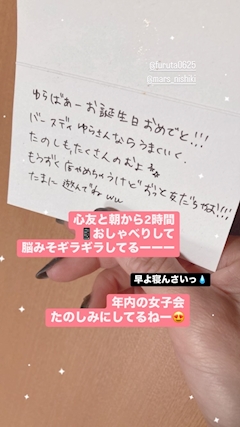 @furuta0625
@mars_nishiki
ゆらばあーお誕生日おめでと!!!
バースディゆらさんならうまくいく。
たのしもたくさんのおよ
もうすぐ店やめちゃうけどずっと友だちだぜ!!!
たまに遊んでねww
心友と朝から2時間
📱おしゃべりして
脳みそギラギラしてるーーー
早よ寝んさいっ💧
年内の女子会
たのしみにしてるねー😍